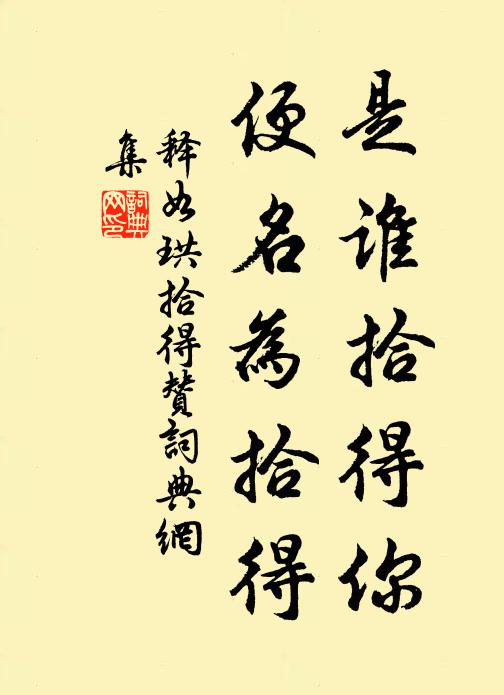 是誰拾得你
便名為拾得
释如珙拾得贊詞典網
集
詞典
网印